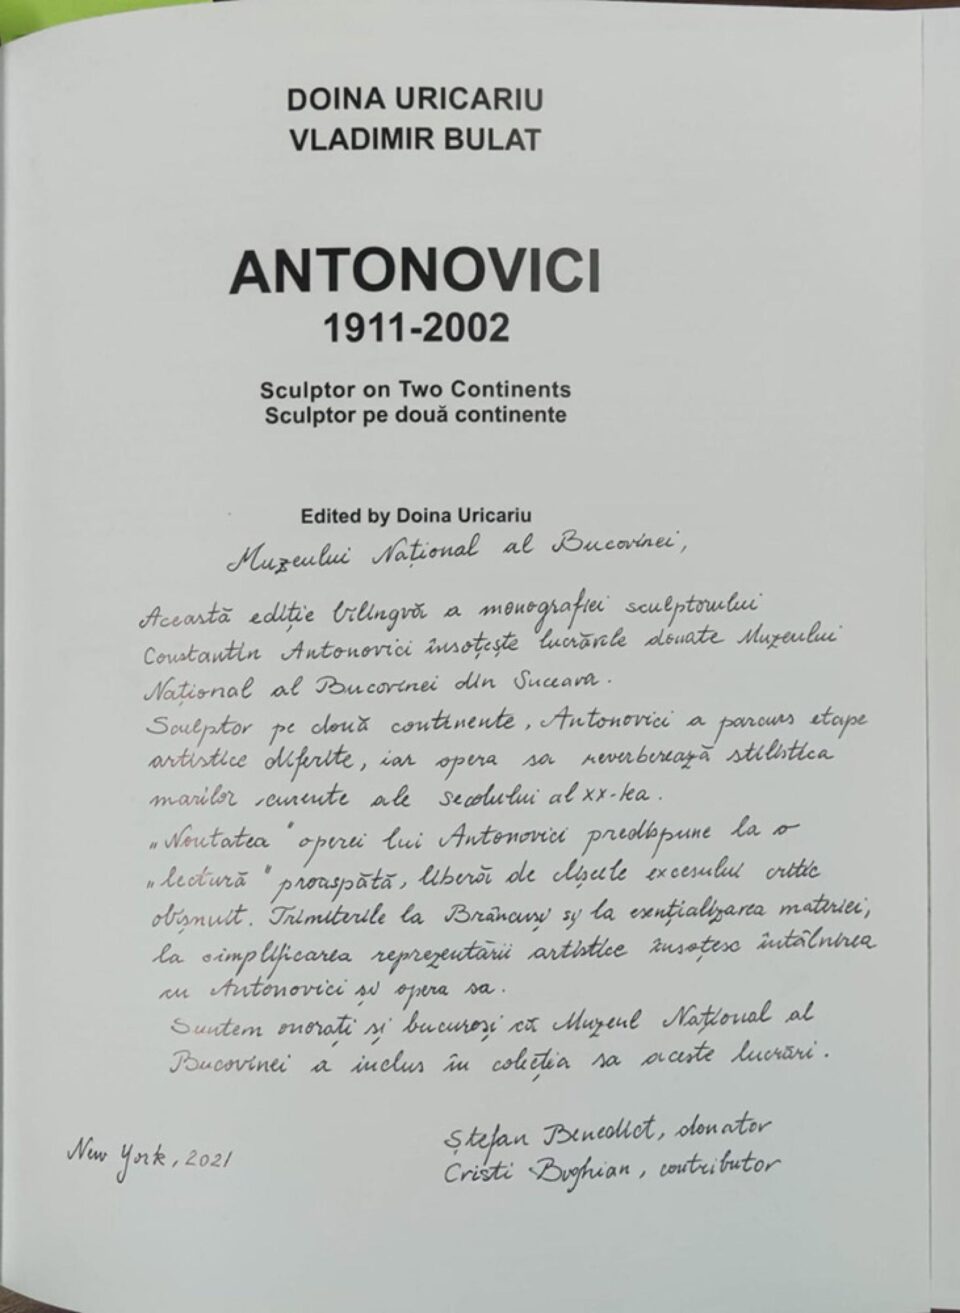 DOINA URICARIU
VLADIMIR BULAT
ANTONOVICI
1911-2002
Sculptor on Two Continents
Sculptor pe două continente
Edited by Doina Uricariu
Muzeului Național al Bucovinei,
Această ediție bilingvă a monografiei sculptorului
Constantin Antonovici însoțește lucrările donate Muzeului
Național al Bucovinei din Suceava.
Sculptor pe două continente, Antonovici a parcurs etape
artistice diferite, iar opera sa reverberează stilistica
marilor curente ale secolului al XX-lea.
„Noutatea" operei lui Antonovici predispune la o
„lectură" proaspătă, liberă de clișeele excesului critic
obișnuit. Trimiterile la Brâncuși și la esențializarea materiei,
la simplificarea reprezentării artistice însoțesc întâlnirea
cu Antonovici și opera sa.
Suntem onorați și bucuroși că Muzeul Național al
Bucovinei a inclus în colecția sa aceste lucrări.
Ștefan Benedict, donator
New York, 2021
Cristi Bughian, contributor